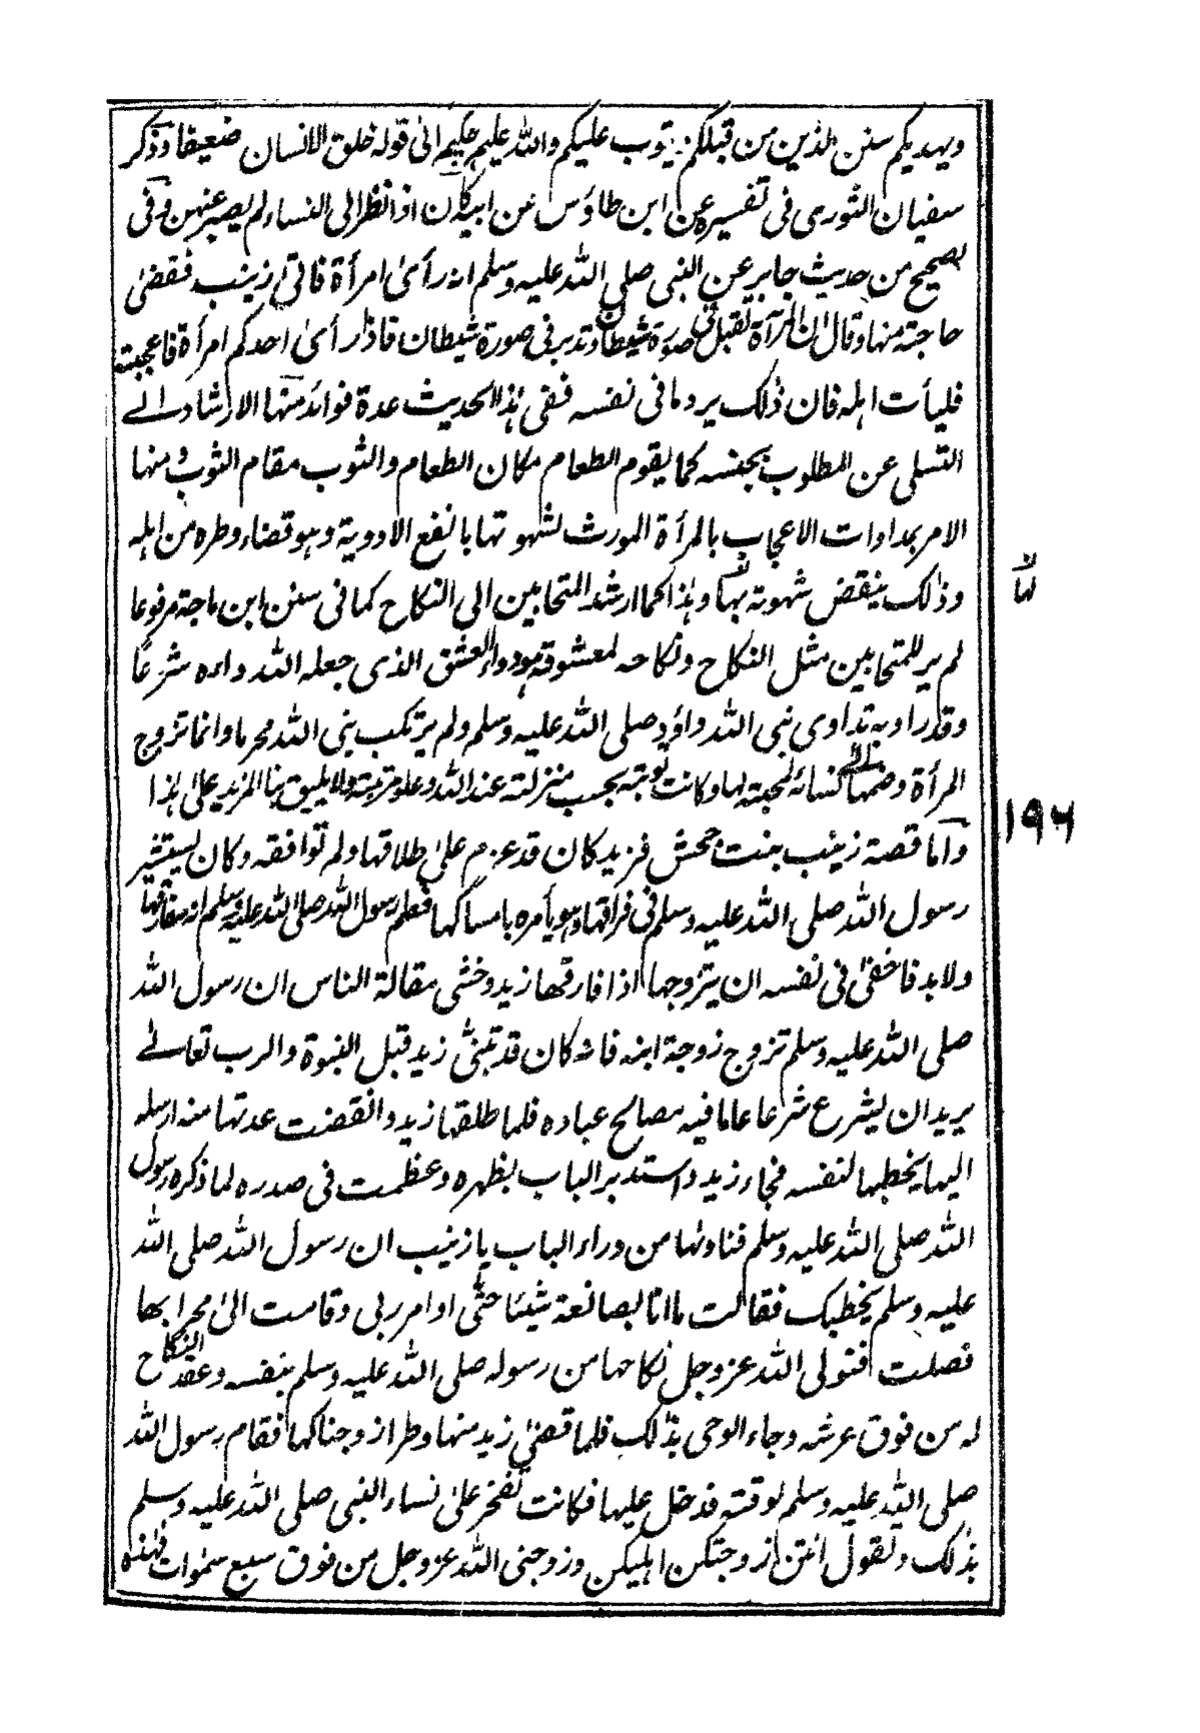 ويهديكم سنن الذين من قبلكم يتوب عليكم والله عليم حكيم الى قوله خلق الانسان ضعيفا وذكر
سفيان الثورى فى تفسيره عن ابن طاؤس عن ابيه كان اذا نظر الى النساء لم يصبر عنهن وفى
لصحيح من حديث جابر عن النبى صلى الله عليه وسلم انه رأى امرأة فاتى زينب فقضى
حاجته منها وقال ان المرآة تقبل فى صورة شيطان وتدبر فى صورة شيطان فاذا رأى احدكم امرأة فاعجبته
فليأت اهله فان ذلك يرد ما فى نفسه ففى هذا الحديث عدة فوائد منها الارشاد الے
التسلى عن المطلوب بجنسه كما يقوم الطعام مكان الطعام والثوب مقام الثوب ومنها
الامر بمداوات الاعجاب بالمرأة المورث لشهوتها بانفع الادوية وهو قضاء وطره من اهله
وذلك ينقض شهوته بها وهذا كما ارشد المتحابين الى النكاح كما فى سنن ابن ماجة مرفوعا
لم ير للمتحابين مثل النكاح ونكاحه لمعشوقة هو دواء العشق الذى جعله الله دواءه شرعًا
وقدرا وبه تداوى نبى الله داؤد صلى الله عليه وسلم ولم يرتكب نبى الله محرما وانما تزوج
المرأة وضمها الى نسائه لمحبته لها وكانت توبته بحسب منزلته عند الله وعلو مرتبته ولا يليق بنا المزيد على هذا
وآما قصة زينب بنت جحش فزيد كان قد عزم على طلاقها ولم توافقه وكان يستشير
رسول الله صلى الله عليه وسلم فى فراقها وهو يأمره بامساكها فعلم رسول الله صلى الله عليه وسلم انه مفارقها
ولا بد فاخفى فى نفسه ان يتزوجها اذا فارقها زيد وخشى مقالة الناس ان رسول الله
صلى الله عليه وسلم تزوج زوجة ابنه فانه كان قد تبنى زيد قبل النبوة والرب تعالے
يريد ان يشرع شرعا عاما فيه مصالح عباده فلما طلقها زيد وانقضت عدتها منه ارسله
اليها يخطبها لنفسه فجاء زيد واستدبر الباب بظهره وعظمت فى صدره لما ذكره رسول
الله صلى الله عليه وسلم فناداها من وراء الباب يا زينب ان رسول الله صلى الله
عليه وسلم يخطبك فقالت ما انا بصانعة شيئا حتى اوامر ربى وقامت الى محرابها
فصلت فتولى الله عز وجل نكاحها من رسوله صلى الله عليه وسلم بنفسه وعقد النكاح
له من فوق عرشه وجاء الوحى بذلك فلما قضى زيد منها وطرا زوجناكها فقام رسول الله
صلى الله عليه وسلم لوقته فدخل عليها فكانت تفخر على نساء النبى صلى الله عليه وسلم
بذلك وتقول انتن زوجتكن اهليكن وزوجنى الله عز وجل من فوق سبع سموات فهذه
۱۹۶